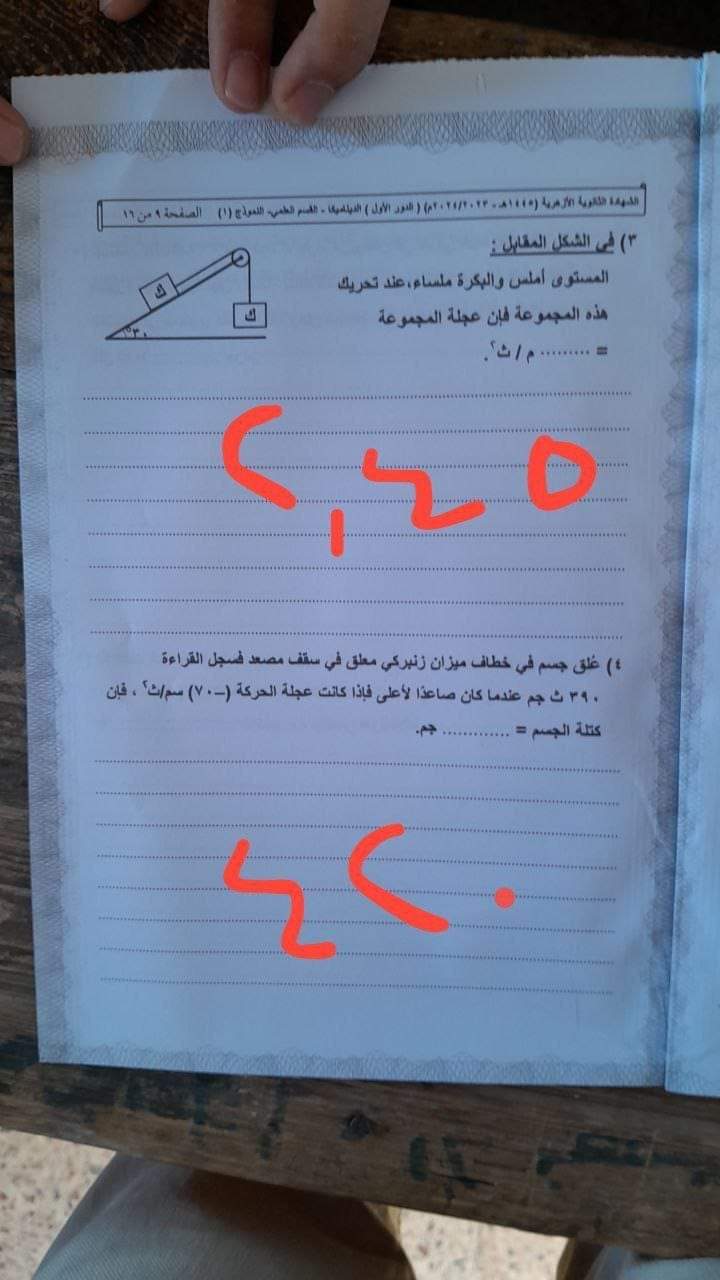 الشهادة الثانوية الأزهرية (١٤٤٥هـ - ٢٠٢٤/٢٠٢٣م) ( الدور الأول ) الديناميكا - القسم العلمي- النموذج (١) الصفحة ٩ من ١٦
٣) في الشكل المقابل :
المستوى أملس والبكرة ملساء،عند تحريك
هذه المجموعة فإن عجلة المجموعة
= ......... م / ث٢.
ك
ك
٣٠°
٢,٤٥
٤) عُلق جسم في خطاف ميزان زنبركي معلق في سقف مصعد فسجل القراءة
٣٩٠ ث جم عندما كان صاعدًا لأعلى فإذا كانت عجلة الحركة (-٧٠) سم/ث٢ ، فإن
كتلة الجسم = ............ جم.
٤٢٠